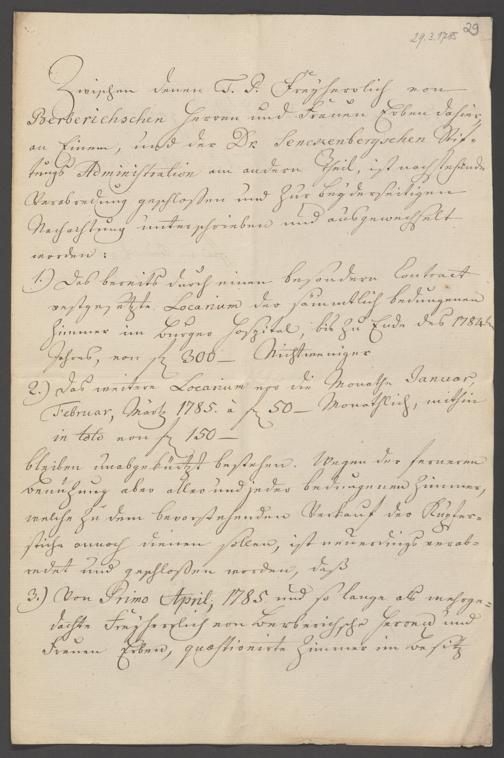 29
29.3.1785
Zwischen denen T. P. Freyherrlich von
Berberichschen Herren und Frauen Erben dahier,
an Einem, und der Dr. Senckenbergschen Stif-
tungs Administration am andern Theil, ist nachstehende
Verabredung geschlossen und zur beyderseitigen
Nachachtung unterschrieben und ausgewechselt
worden:
1.) Das bereits durch einen besondern Contract
vestgesetzte Locarium der sämmtlich bedungenen
Zimmer im Burger Hospital, bis zu Ende des 1784
Jahres, von f 300 — Nichtweniger
2.) Das weitere Locarium pro die Monathe Januar,
Februar, Märtz 1785. à f 50 — Monathlich, mithin
in toto von f 150 —
bleiben unabgekürtzt bestehen. Wegen der ferneren
Benutzung aber aller und jeder bedungenen Zimmer,
welche zu dem bevorstehenden Verkauf der Kupfer-
stiche annoch dienen sollen, ist neuerdings verab-
redet und geschlossen worden, daß
3.) Von Primo April, 1785 und so lange als mehrge-
dachte Freyherrlich von Berberichsche Herren und
Frauen Erben, quaestionirte Zimmer im Besitz